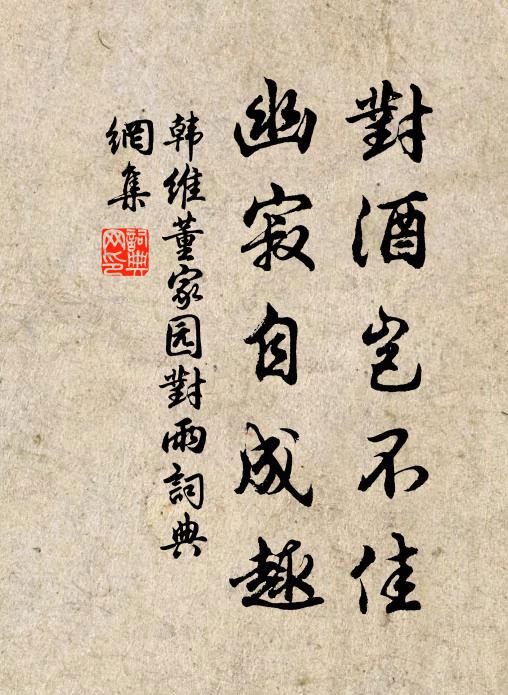 對酒岂不佳
幽寂自成趣
韩维董家园對雨詞典
網集
詞典网印